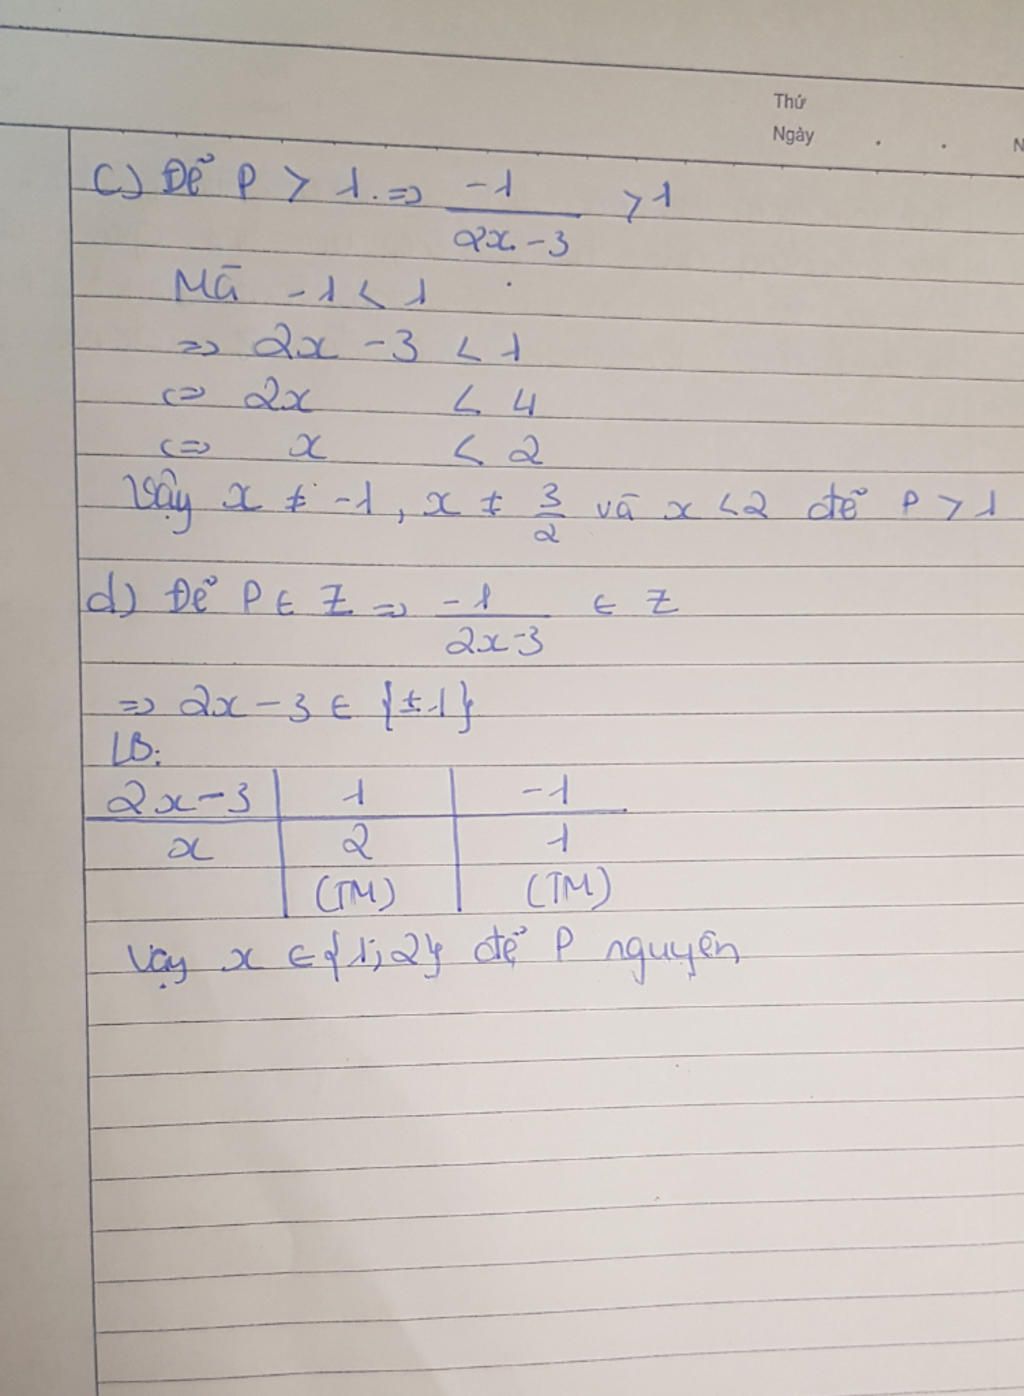 Thứ
Ngày . . N
c) Để P > 1. => -1/(2x-3) > 1
Mà -1 < 1
=> 2x - 3 < 1
<=> 2x < 4
<=> x < 2
Vậy x ≠ -1, x ≠ 3/2 và x < 2 để P > 1
d) Để P ∈ Z => -1/(2x-3) ∈ Z
=> 2x - 3 ∈ {±1}
LB:
2x-3 | 1 | -1
x | 2 | 1
(TM) | (TM)
Vậy x ∈ {1; 2} để P nguyên